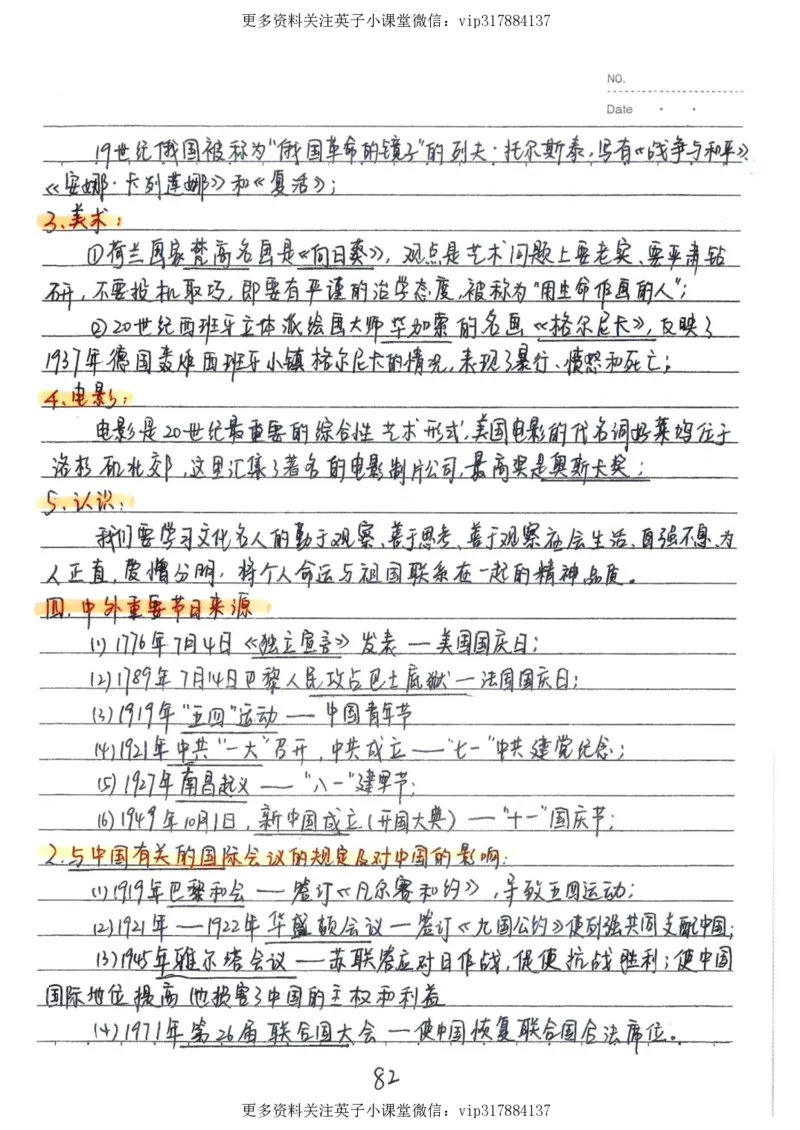 更多资料关注英子小课堂微信：vip317884137
NO.
Date
19世纪俄国被称为"俄国革命的镜子"的列夫·托尔斯泰，写有《战争与和平》、
《安娜·卡列莲娜》和《复活》；
3、美术：
①荷兰画家梵高名画是《向日葵》，观点是艺术问题上要老实、要严肃钻
研，不要投机取巧，即要有严谨的治学态度，被称为"用生命作画的人"；
②20世纪西班牙立体派绘画大师毕加索的名画《格尔尼卡》，反映了
1937年德国轰炸西班牙小镇格尔尼卡的情况，表现了暴行、愤怒和死亡；
4、电影：
电影是20世纪最重要的综合性艺术形式，美国电影的代名词好莱坞位于
洛杉矶北郊，这里汇集了著名的电影制片公司，最高奖是奥斯卡奖；
5、认识：
我们要学习文化名人的勤于观察、善于思考、善于观察社会生活、自强不息、为
人正直，爱憎分明，将个人命运与祖国联系在一起的精神品质。
四、中外重要节日来源
(1)1776年7月4日《独立宣言》发表—美国国庆日；
(2)1789年7月14日巴黎人民攻占巴士底狱—法国国庆日；
(3)1919年"五四"运动—中国青年节
(4)1921年中共"一大"召开，中共成立—"七一"中共建党纪念；
(5)1927年南昌起义—"八一"建军节；
(6)1949年10月1日，新中国成立(开国大典)—"十一"国庆节；
2.与中国有关的国际会议的规定及对中国的影响：
(1)1919年巴黎和会—签订《凡尔赛和约》，导致五四运动；
(2)1921年—1922年华盛顿会议—签订《九国公约》使列强共同支配中国；
(3)1945年雅尔塔会议—苏联答应对日作战，促使抗战胜利；使中国
国际地位提高 也损害了中国的主权和利益
(4)1971年第26届联合国大会—使中国恢复联合国合法席位。
82
更多资料关注英子小课堂微信：vip317884137